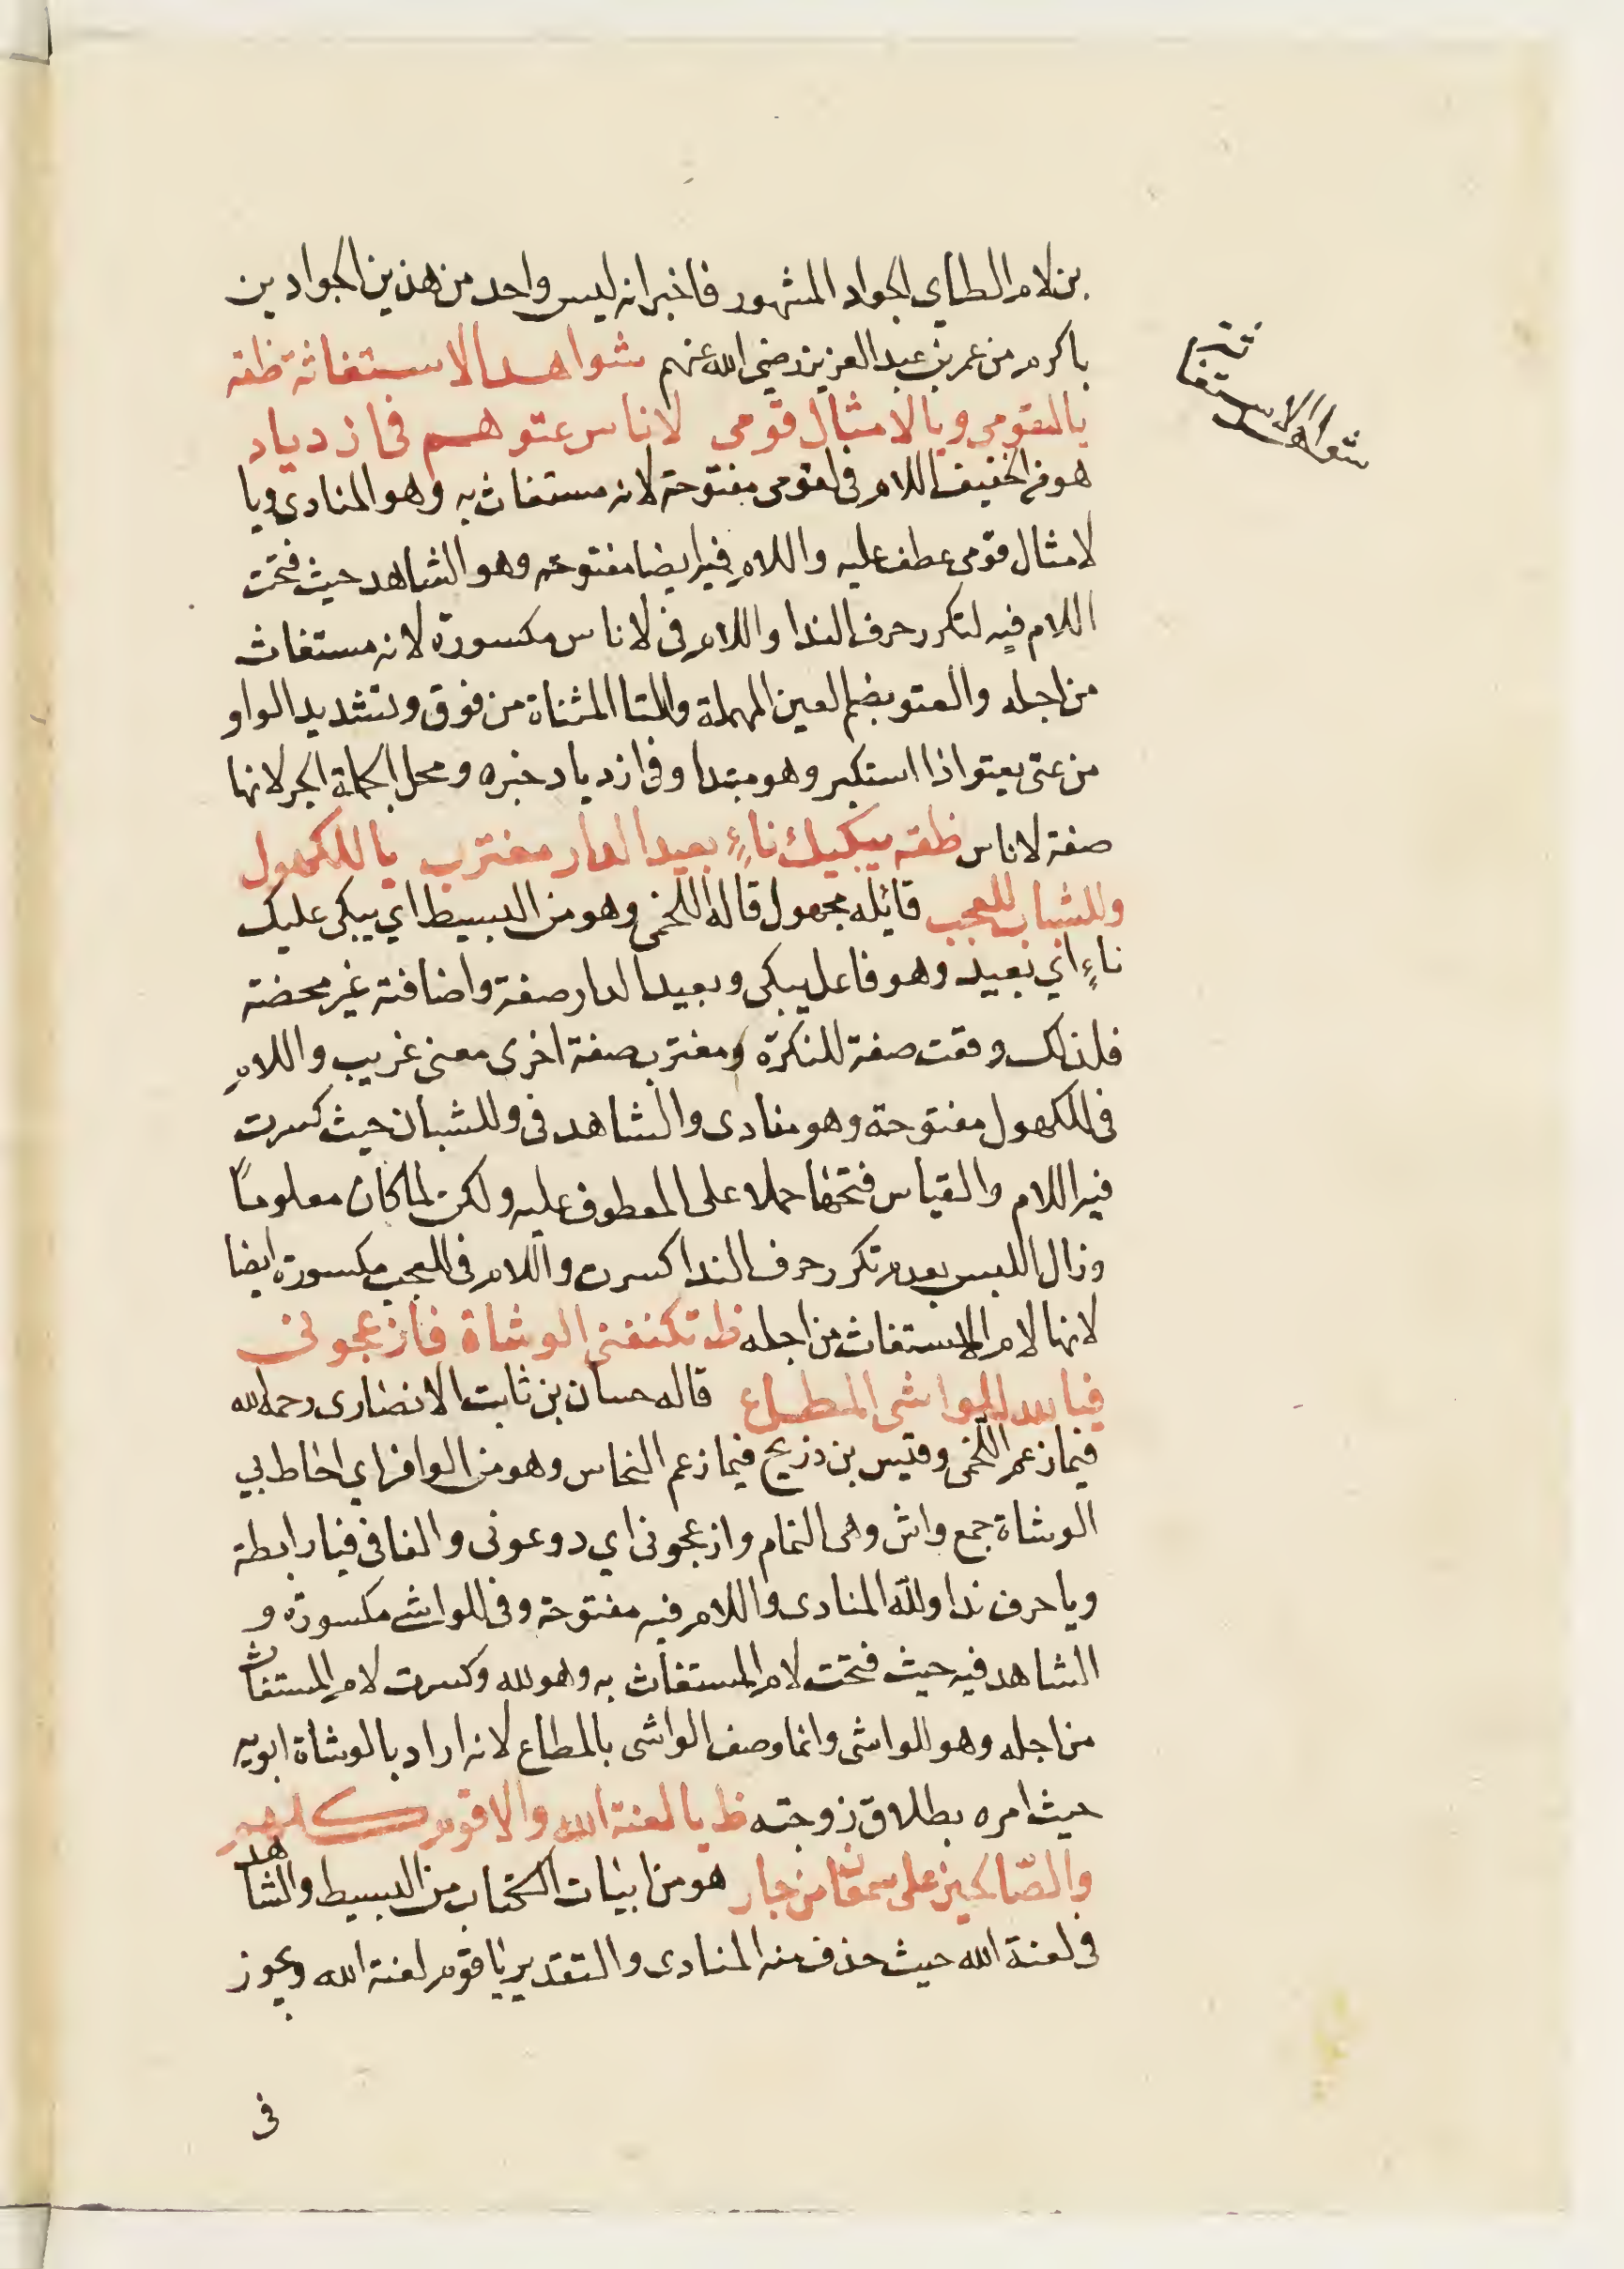 بن لام الطاي الجواد المشهور فاخبر انه ليس واحد من هذين الجوادين
باكرم من عمر بن عبد العزيز رضي الله عنهم شواهد الاستغاثة ظقه
شواهد الاستغاثة
يا لقومي ويا لامثال قومي لاناس عتوهم في ازدياد
هو من الخفيف اللام في لقومي مفتوحة لانه مستغاث به وهو المنادى ويا
لامثال قومي عطف عليه واللام فيه ايضا مفتوحه وهو الشاهد حيث فتحت
اللام فيه لتكرر حرف الندا واللام في لاناس مكسورة لانه مستغاث
من اجله والعتو بضم العين المهملة والتا المثناة من فوق وتشديد الواو
من عتى يعتو اذا استكبر وهو مبتدا وفي ازدياد خبره ومحل الجملة الجر لانها
صفة لاناس ظقه يبكيك ناءٍ بعيد الدار مغترب يا للكهول
وللشبان للعجب قائله مجهول قاله اللخمي وهو من البسيط اي يبكي عليك
ناءٍ اي بعيد وهو فاعل يبكي وبعيد الدار صفة واضافته غير محضة
فلذلك وقعت صفة للنكرة ومغترب صفة اخرى معنى غريب واللام
في للكهول مفتوحة وهو منادى والشاهد في وللشبان حيث كسرت
فيه اللام والقياس فتحها حملا على المعطوف عليه ولكن لما كان معلوماً
وزال اللبس بعدم تكرر حرف الندا كسرت واللام في للعجب مكسورة ايضا
لانها لام الاستغاث من اجله ظ تكنفني الوشاة فازعجوني
فيا لله للواشي المطاع قاله حسان بن ثابت الانصارى رحمه الله
فيما زعم اللخمي وقيس بن دريج فيما زعم النحاس وهو من الوافر اي احاط بي
الوشاة جمع واش وهى النمام وازعجوني اي دوعوني والفا في فيا رابطة
ويا حرف ندا ولله المنادى واللام فيه مفتوحة وفي للواشي مكسورة و
الشاهد فيه حيث فتحت لام المستغاث به وهو لله وكسرت لام المستغاث
من اجله وهو للواشي وانما وصف الواشي بالمطاع لانه اراد بالوشاة ابويه
حيث امره بطلاق زوجته ظ يا لعنة الله والاقوم كلهم
والصّالحين على سمعان من جار هو من ابيات الكتاب من البسيط والشاهد
في لعنة الله حيث حذف منه المنادى والتقدير يا قوم لعنة الله ويجوز
في